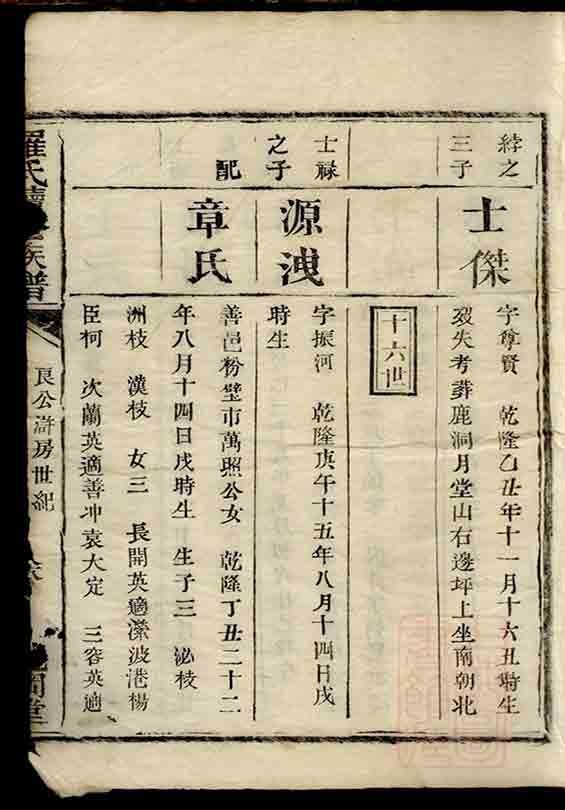 綍之
三子
士傑
字尊賢　乾隆乙丑年十一月十六丑時生
歿失考葬鹿洞月堂山右邊坪上坐南朝北
十六世
士祿
之子
源洩
字振河　乾隆庚午十五年八月十四日戌
時生
配
章氏
善邑粉壁市萬照公女　乾隆丁丑二十二
年八月十四日戌時生　生子三　泌枝
洲枝　漢枝　女三　長開英適瀠波港楊
臣柯　次蘭英適善冲袁大定　三容英適
羅氏續　族譜
良公濟房世紀
堂